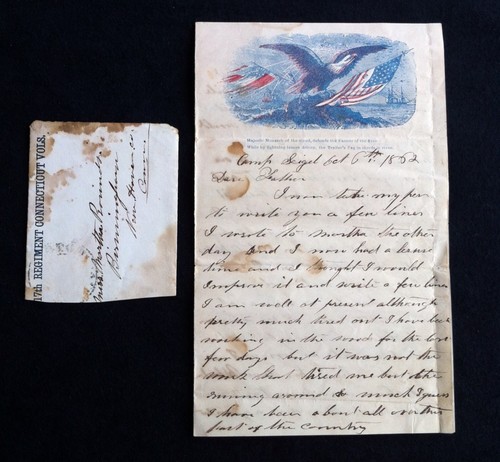 17th REGIMENT CONNECTICUT VOLS.
Miss Martha
Birmingham
New Haven Co
Conn
Camp Sigel Oct 6th 1862
Dear Father
I now take my pen
to write you a few lines
I wrote to Martha the other
day and I now had a leisure
time and I thought I would
Improve it and write a few lines
I am well at present although
pretty much tired out I have been
working in the wood for the last
few days but it was not the
work that tired me but the
running around so much I guess
I have been about all over this
part of the country